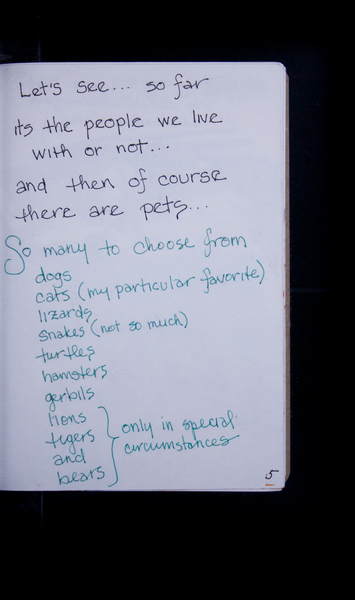 Let's see... so far
its the people we live
with or not...
and then of course
there are pets...
So many to choose from
dogs
cats (my particular favorite)
lizards
snakes (not so much)
turtles
hamsters
gerbils
lions
tigers
and
bears
only in special
circumstances
5